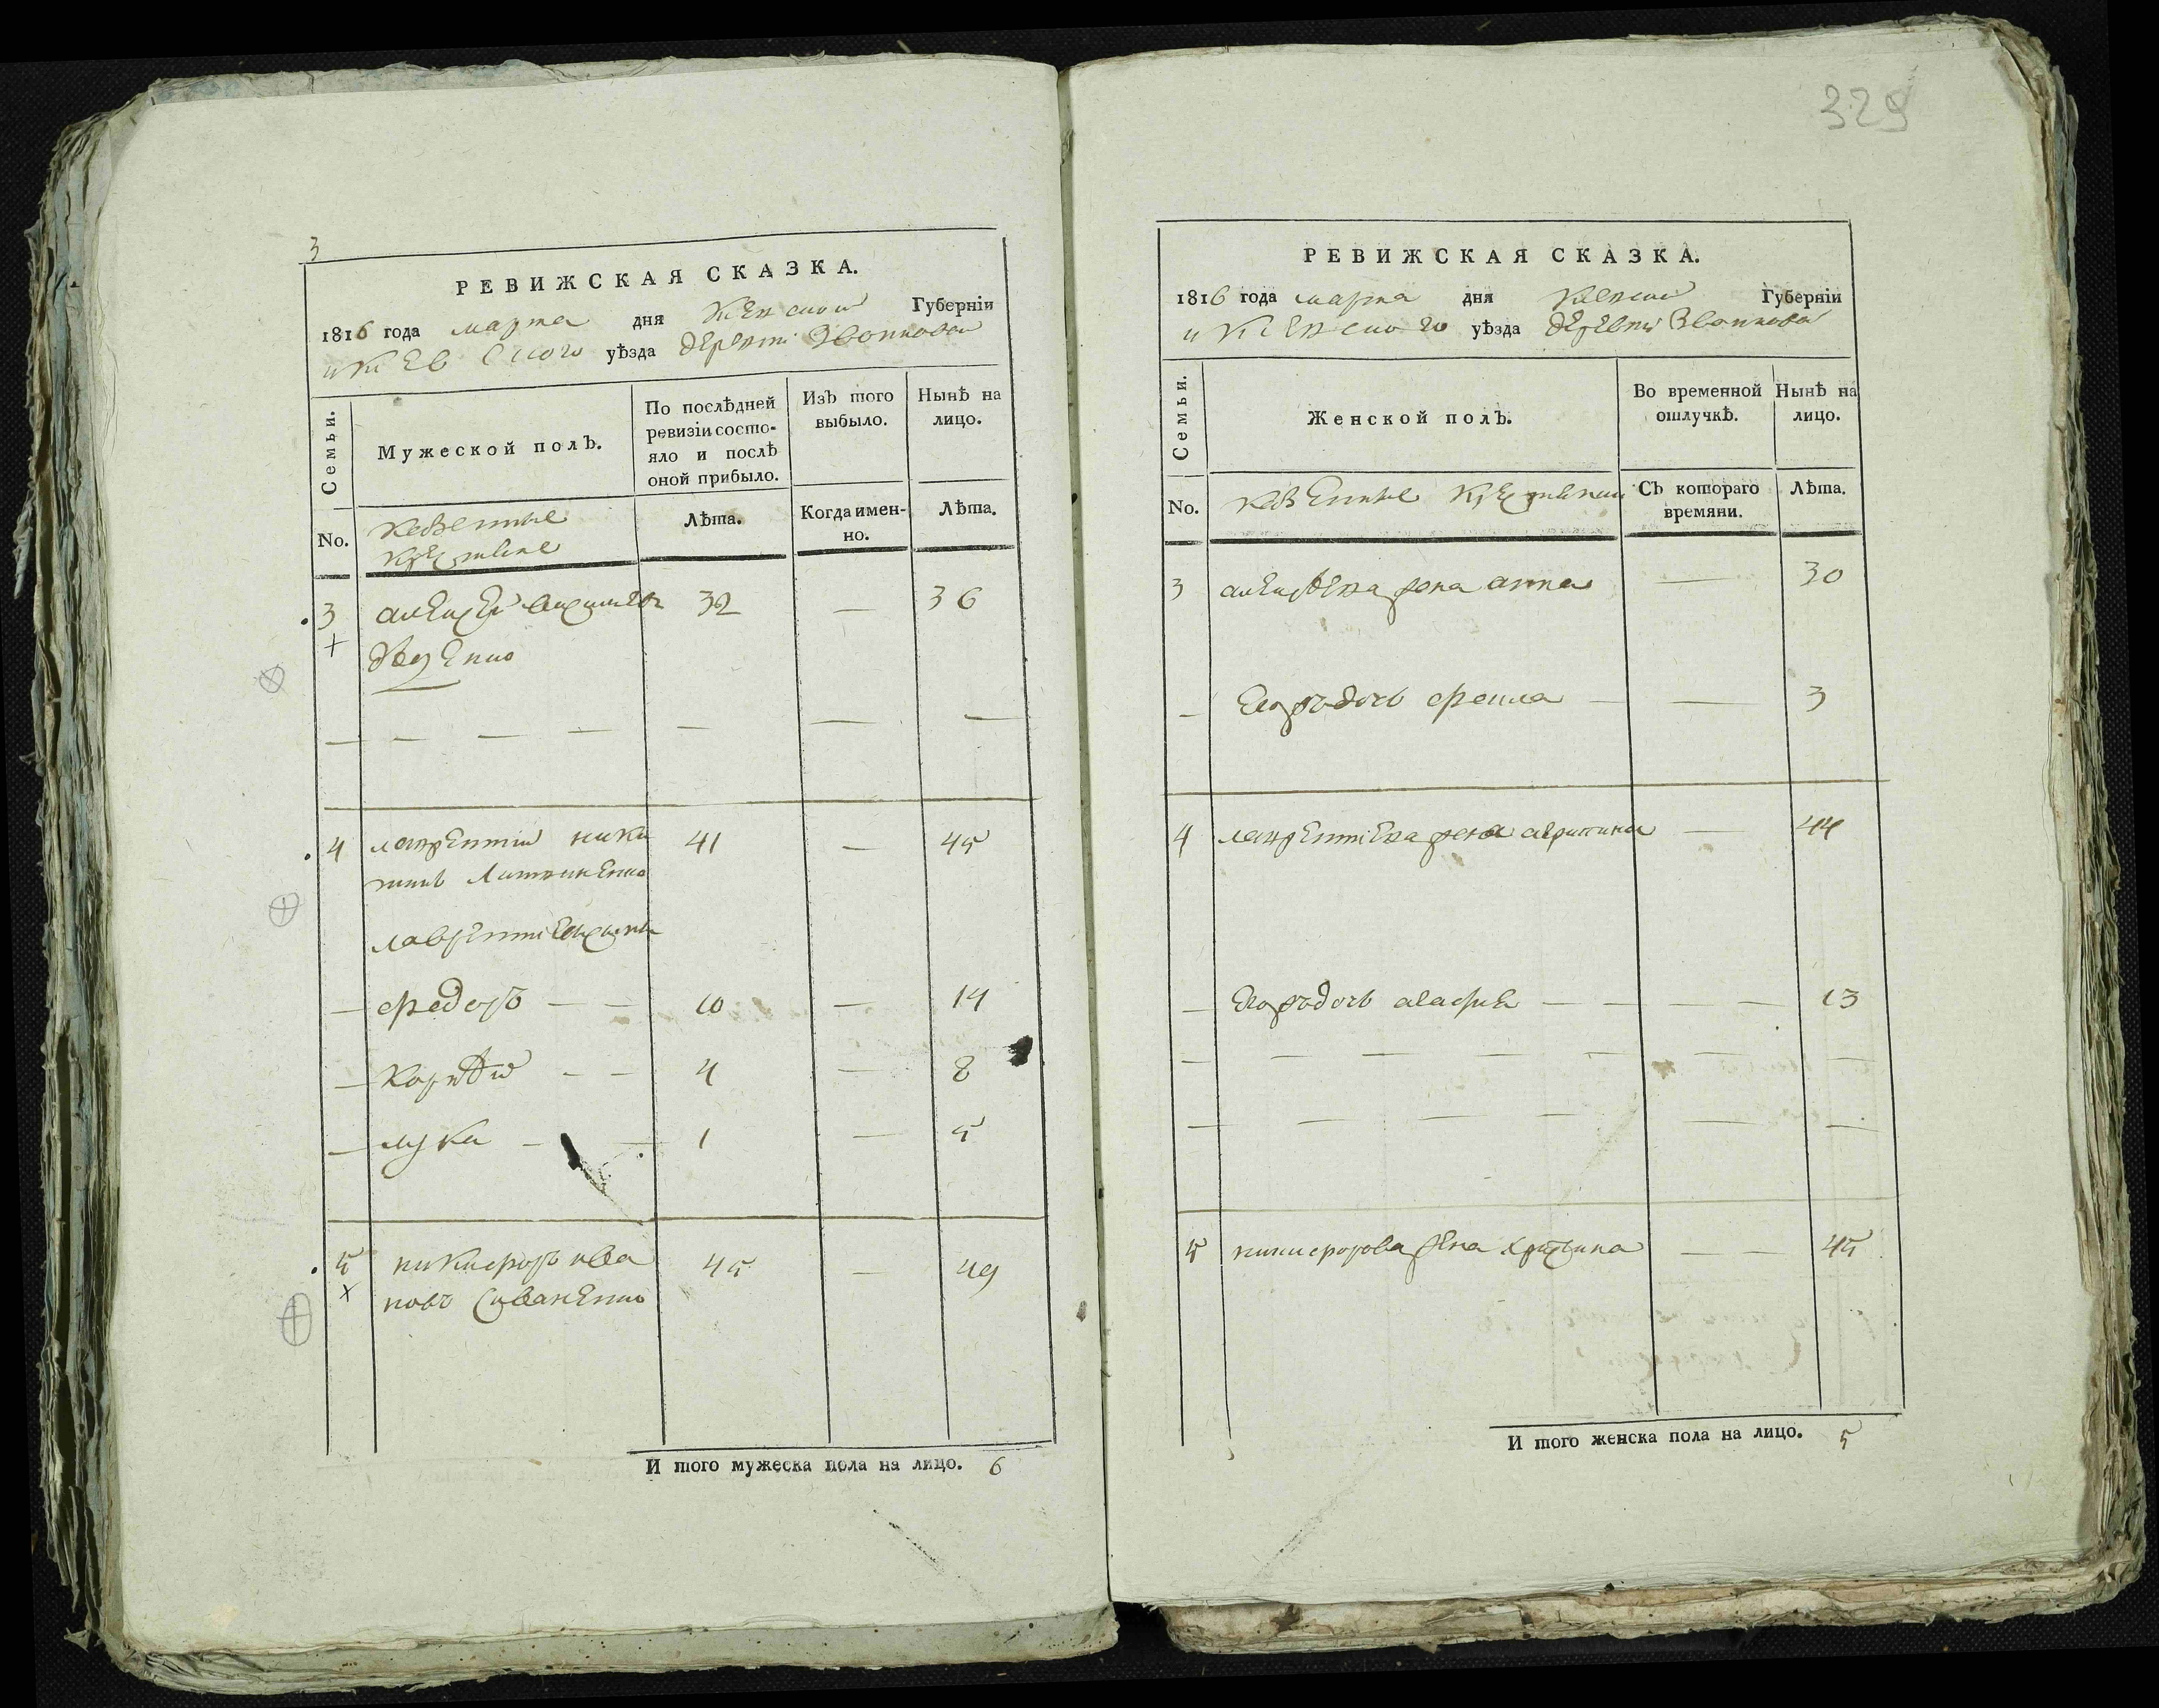 3
РЕВИЖСКАЯ СКАЗКА.
1816 года марта дня Киевской Губерніи
и Киевского уѣзда деревни Звонковой
Семьи.
Мужеской полЪ.
По послѣдней ревизіи состояло и послѣ оной прибыло.
ИзЪ того выбыло.
Нынѣ на лицо.
No.
казенные
крестяне
Лѣта.
Когда именно.
Лѣта.
3 алексей 32 — 36
4 лаврентий ники 41 — 45
тинъ Литвиненко
лаврентiева сыны
— федоръ — — 10 — 14
— Корнѣй — — 4 — 8
— лука — — 1 — 5
5 никифоръ ива 45 — 49
новъ
И того мужеска пола на лицо. 6
329
РЕВИЖСКАЯ СКАЗКА.
1816 года марта дня Киевской Губерніи
и Киевского уѣзда деревни Звонковой
Семьи.
Женской полЪ.
Во временной отлучкѣ.
Нынѣ на лицо.
No.
казенные крестянки
СЪ котораго времяни.
Лѣта.
3 алексѣева жена анна — 30
— Его ж дочь фекла — — 3
4 лаврентiева жена — 44
— Его ж дочь агафия — — — — 13
5 никифорова жена христина — — 45
И того женска пола на лицо. 5